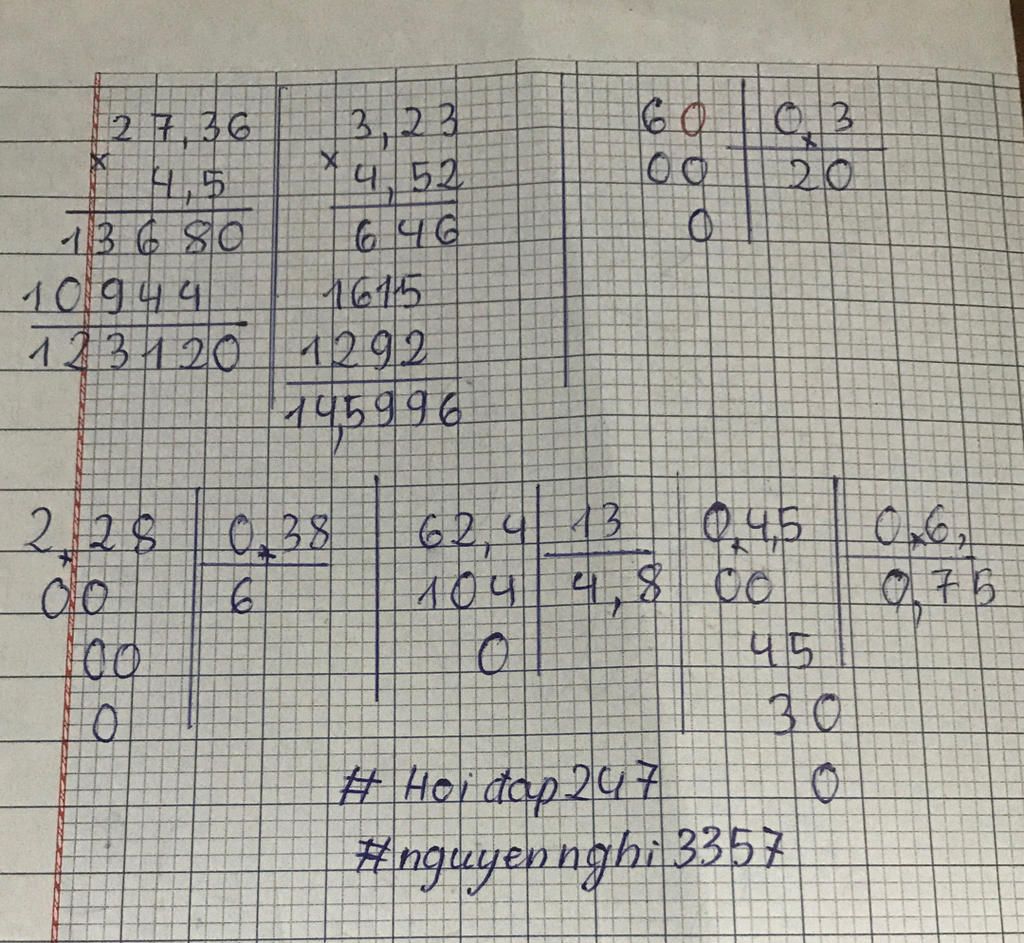 27,36
× 4,5
13680
10944
123120
3,23
× 4,52
646
1615
1292
14,5996
60 0,3
00 20
0
2,28 0,38
00 6
00
0
62,4 13
104 4,8
0
0,4,5 0,6,
00 0,75
45
30
0
# Hoidap247
#nguyennghi3357